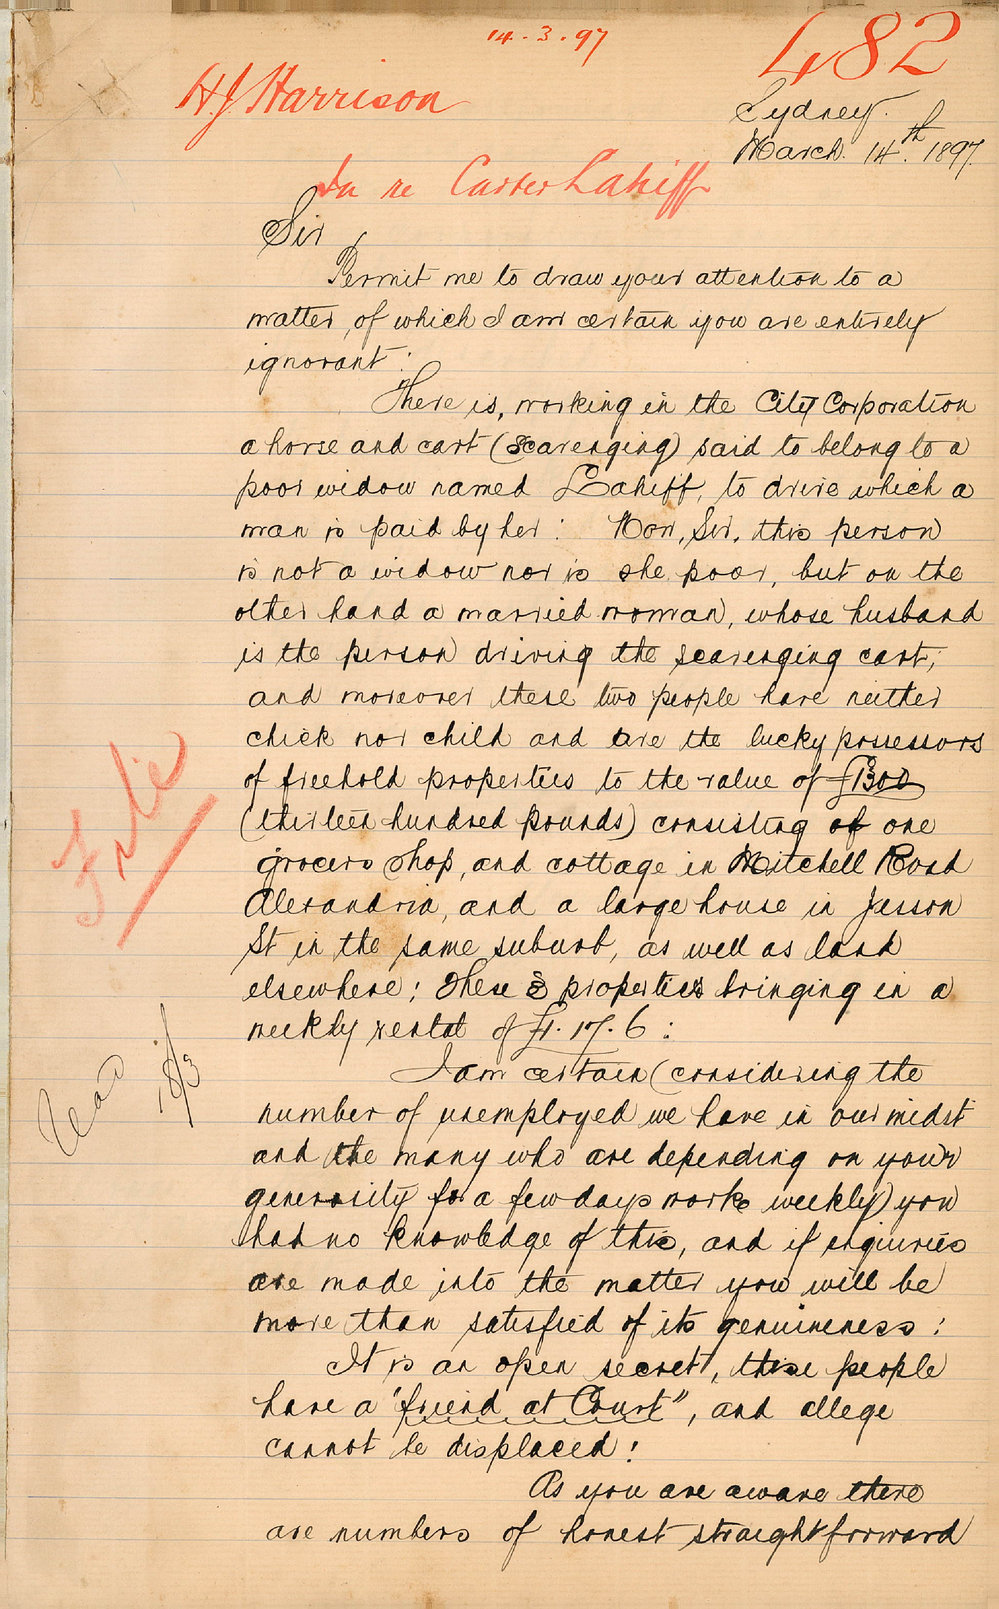 14.3.97
482
H.J. Harrison
Sydney.
March. 14th. 1897.
In re Carter Lahiff
Sir,
Permit me to draw your attention to a
matter, of which I am certain you are entirely
ignorant:
There is, working in the City Corporation
a horse and cart (scavenging) said to belong to a
poor widow named Lahiff, to drive which a
man is paid by her: Now, Sir, this person
is not a widow nor is she poor, but on the
other hand a married woman, whose husband
is the person driving the scavenging cart;
and moreover these two people have neither
chick nor child and are the lucky possessors
of freehold properties to the value of £1300
(thirteen hundred pounds) consisting of one
grocers shop, and cottage in Mitchell Road
Alexandria, and a large house in Jesson
St in the same suburb, as well as land
elsewhere; these 3 properties bringing in a
weekly rental of £1.17.6:
I am certain (considering the
number of unemployed we have in our midst
and the many who are depending on your
generosity for a few days work weekly) you
had no knowledge of this, and if enquiries
are made into the matter you will be
more than satisfied of its genuineness:
It is an open secret, these people
have a "friend at Court", and allege
cannot be displaced:
As you are aware there
are numbers of honest straightforward
File
Read
16/3